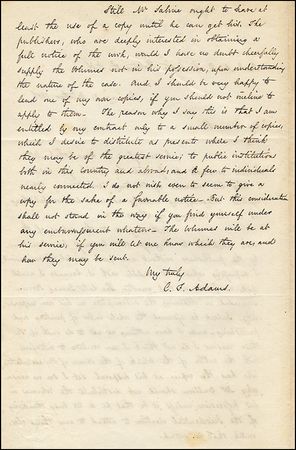 Still Mr Sabine ought to have at
least the use of a copy until he can get his. The
publishers, who are deeply interested in obtaining a
full notice of the work, would I have no doubt cheerfully
supply the volumes not in his possession, upon understanding
the nature of the case. And I should be very happy to
lend one of my own copies, if you should not incline to
apply to them. The reason why I say this is that I am
entitled by my contract only to a small number of copies,
which I desire to distribute as presents where I think
they may be of the greatest service, to public institutions
both in this country and abroad, and to few to individuals
nearly connected. I do not wish even to seem to give a
copy for the sake of a favorable notice. But this consideration
shall not stand in the way if you find yourself under
any embarrassment whatever. The volumes will be at
his service, if you will let me know which they are, and
how they may be sent.
truly
C. F. Adams.